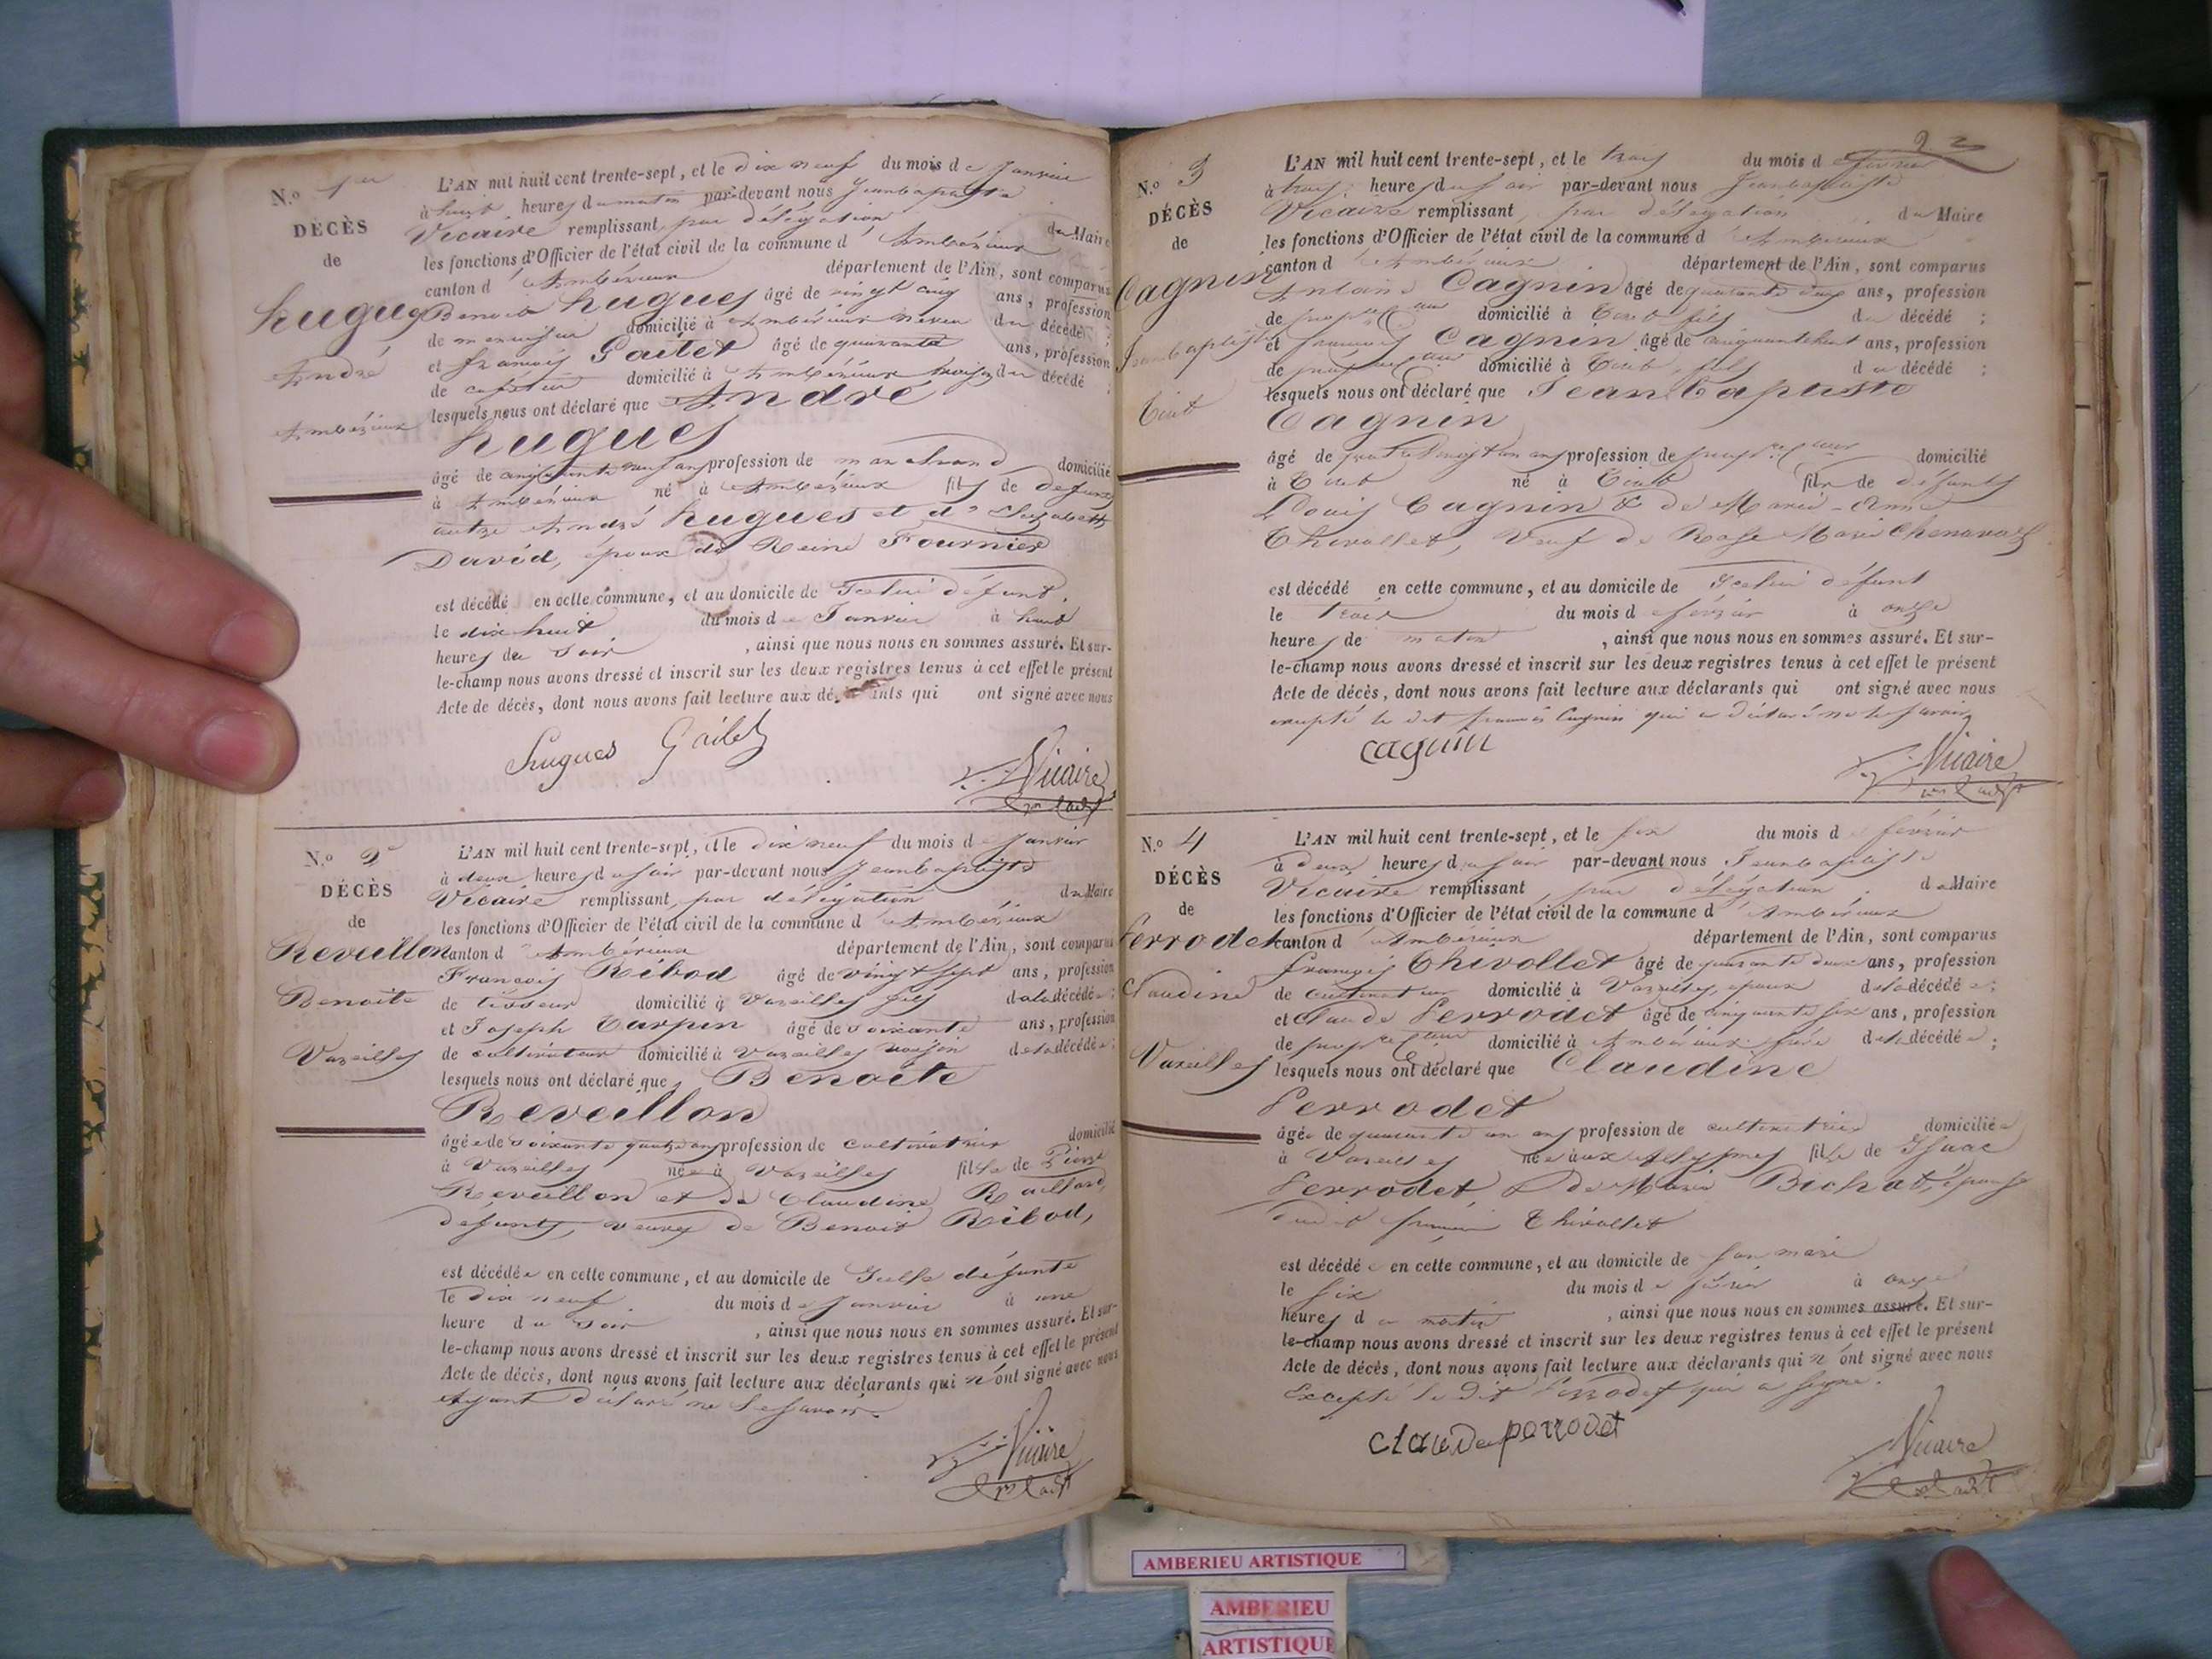 N.o 1er
DÉCÈS
de
hugues
André
Ambérieux
L'AN mil huit cent trente-sept, et le dix neuf du mois de Janvier
à huit heures du matin par-devant nous Jeanbaptiste
Vicaire remplissant, par délégation du Maire
les fonctions d'Officier de l'état civil de la commune d'Ambérieux
canton d'Ambérieux département de l'Ain, sont comparus
Benoit hugues âgé de vingt cinq ans, profession
de menuisier domicilié à Ambérieux neveu du décédé;
et françois Gaitet âgé de quarante ans, profession
de domicilié à Ambérieux voisin du décédé;
lesquels nous ont déclaré que André
hugues
âgé de cinquante neuf ans profession de marchand domicilié
à Ambérieux né à Ambérieux fils de defunt
autre André hugues et d'Elisabeth
David, époux de Reine Fournier
est décédé en cette commune, et au domicile de Icelui défunt,
le dix huit du mois de Janvier à huit
heures du soir, ainsi que nous nous en sommes assuré. Et sur-
le-champ nous avons dressé et inscrit sur les deux registres tenus à cet effet le présent
Acte de décès, dont nous avons fait lecture aux déclarants qui ont signé avec nous
hugues Gaitet
Vicaire
N.o 2
DÉCÈS
de
Reveillon
Benoite
Vareilles
L'AN mil huit cent trente-sept, et le dix neuf du mois de Janvier
à deux heures du soir par-devant nous Jeanbaptiste
Vicaire remplissant, par délégation du Maire
les fonctions d'Officier de l'état civil de la commune d'Ambérieux
canton d'Ambérieux département de l'Ain, sont comparus
François Ribod âgé de vingt sept ans, profession
de tisseur domicilié à Vareilles fils de la décédée;
et Joseph Turpin âgé de soixante ans, profession
de cultivateur domicilié à Vareilles voisin de la décédée;
lesquels nous ont déclaré que Benoite
Reveillon
âgée de soixante quatre ans profession de cultivatrice domicilié
à Vareilles née à Vareilles fille de Pierre
Reveillon et de Claudine Raillard,
defunts, veuve de Benoit Ribod,
est décédée en cette commune, et au domicile de Icelle défunte
le dix neuf du mois de Janvier à une
heure du soir, ainsi que nous nous en sommes assuré. Et sur-
le-champ nous avons dressé et inscrit sur les deux registres tenus à cet effet le présent
Acte de décès, dont nous avons fait lecture aux déclarants qui n'ont signé avec nous
ayant déclaré ne le savoir.
Vicaire
N.o 3
DÉCÈS
de
Cagnin
Jeanbaptiste
Tiret
L'AN mil huit cent trente-sept, et le trois du mois de février
à trois heures du soir par-devant nous Jeanbaptiste
Vicaire remplissant, par délégation du Maire
les fonctions d'Officier de l'état civil de la commune d'Ambérieux
canton d'Ambérieux département de l'Ain, sont comparus
Antoine Cagnin âgé de quarante deux ans, profession
de propriétaire domicilié à Tiret fils du décédé;
et françois Cagnin âgé de cinquantehuit ans, profession
de propriétaire domicilié à Tiret, fils du décédé;
lesquels nous ont déclaré que Jeanbaptiste
Cagnin
âgé de quatrevingt un ans profession de propriétaire domicilié
à Tiret né à Tiret fils de défunts
Louis Cagnin & de Marie-Anne
Thivollet, Veuf de Rose Marie Chenavas
est décédé en cette commune, et au domicile de Icelui défunt
le trois du mois de février à onze
heures de matin, ainsi que nous nous en sommes assuré. Et sur-
le-champ nous avons dressé et inscrit sur les deux registres tenus à cet effet le présent
Acte de décès, dont nous avons fait lecture aux déclarants qui ont signé avec nous
excepté le dit françois Cagnin qui a déclaré ne le savoir
cagnin
Vicaire
N.o 4
DÉCÈS
de
Perrodet
Claudine
Vareilles
L'AN mil huit cent trente-sept, et le six du mois de février
à deux heures du soir par-devant nous Jeanbaptiste
Vicaire remplissant, par délégation du Maire
les fonctions d'Officier de l'état civil de la commune d'Ambérieux
canton d'Ambérieux département de l'Ain, sont comparus
françois Thivollet âgé de quarante deux ans, profession
de cultivateur domicilié à Vareilles, époux de la décédée;
et Claude Perrodet âgé de cinquante six ans, profession
de propriétaire domicilié à Ambérieux frère de la décédée;
lesquels nous ont déclaré que Claudine
Perrodet
âgée de quarante un ans profession de cultivatrice domiciliée
à Vareilles née aux allymes fille de Isaac
Perrodet & de Marie Bichat, épouse
dudit françois Thivollet
est décédée en cette commune, et au domicile de son mari
le six du mois de février à onze
heures du matin, ainsi que nous nous en sommes assuré. Et sur-
le-champ nous avons dressé et inscrit sur les deux registres tenus à cet effet le présent
Acte de décès, dont nous avons fait lecture aux déclarants qui n'ont signé avec nous
Excepté le dit Perrodet qui a signé.
claude perrodet
Vicaire
AMBERIEU ARTISTIQUE
AMBERIEU
ARTISTIQUE